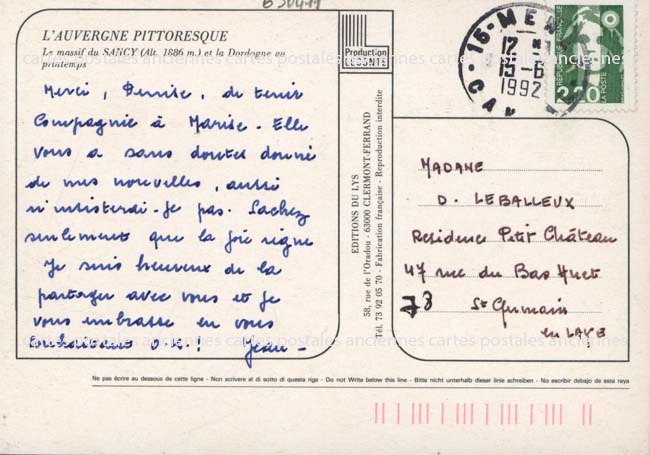 L'AUVERGNE PITTORESQUE
Le massif du SANCY (Alt. 1886 m.) et la Dordogne au
printemps
Merci, Denise, de tenir
Compagnie à Marise. Elle
vous a sans doutes donné
de mes nouvelles, aussi
n'insisterai-je pas. Sachez
seulement que la joie règne
Je suis heureux de la
partager avec vous et je
vous embrasse en vous
souhaitant O.K.! Jean-
Production
LECONTE
EDITIONS DU LYS
58, rue de l'Oradou - 63000 CLERMONT-FERRAND
Tél. 73 92 05 70 - Fabrication française - Reproduction interdite
15-ME
12
15-6
1992
CAN
REPUBLIQUE FRANÇAISE
2,20
LA POSTE
MADAME
D. LEBALLEUX
Residence Petit Château
47 rue du Bas
78 St Germain
en LAYE
cartes postales anciennes cartes postales anciennes
cartes postales anciennes cartes postales anciennes
Ne pas écrire au dessous de cette ligne - Non scrivere al di sotto di questa riga - Do not Write below this line - Bitte nicht unterhalb dieser linie schreiben - No escribir debajo de esta raya